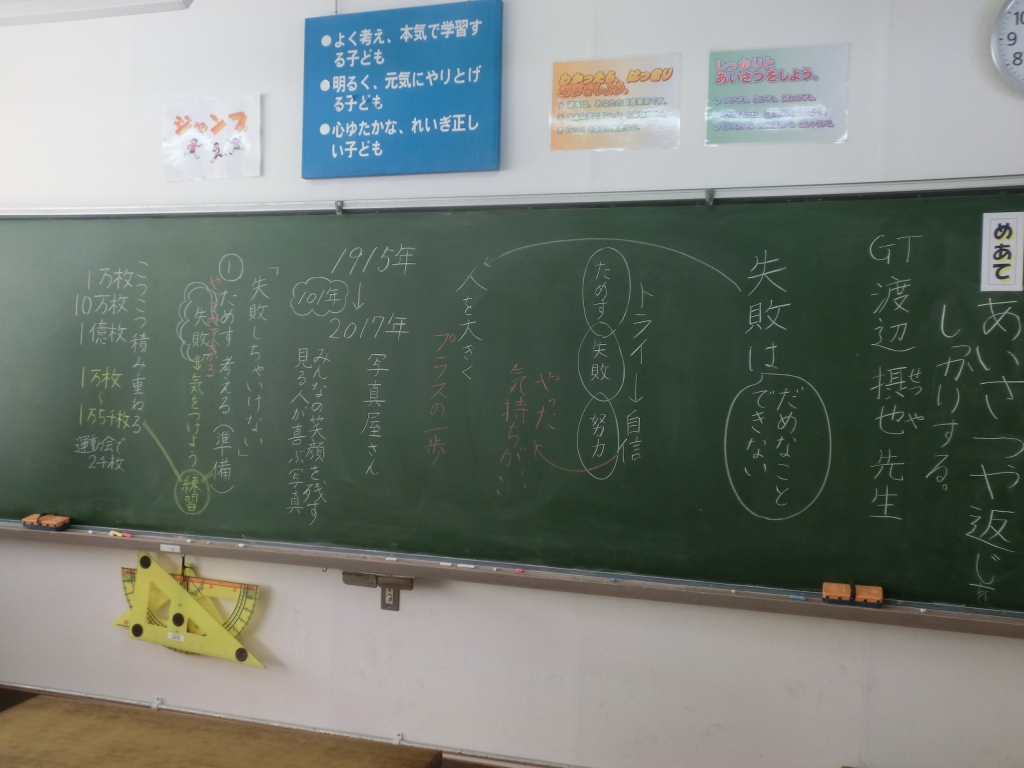 ●よく考え、本気で学習す
る子ども
●明るく、元気にやりとげ
る子ども
●心ゆたかな、れいぎ正し
い子ども
ジャンプ
しっかりと
あいさつをしよう。
10
9
8
めあて
あいさつや返じを
しっかりする。
GT
渡辺摂也先生
せつや
失敗は
だめなこと
できない
トライ→自信
ためす
失敗
努力
やった
気持ちが…
人を大きく
プラスの一歩
1915年
101年
2017年
写真屋さん
みんなの笑顔を残す
見る人が喜ぶ写真
「失敗しちゃいけない」
①ためす 考える(準備)
失敗
気をつけよう
練習
こつこつ積み重ねる
1万枚
10万枚
1億枚
1万枚
~
1万5千枚
運動会で
2千枚